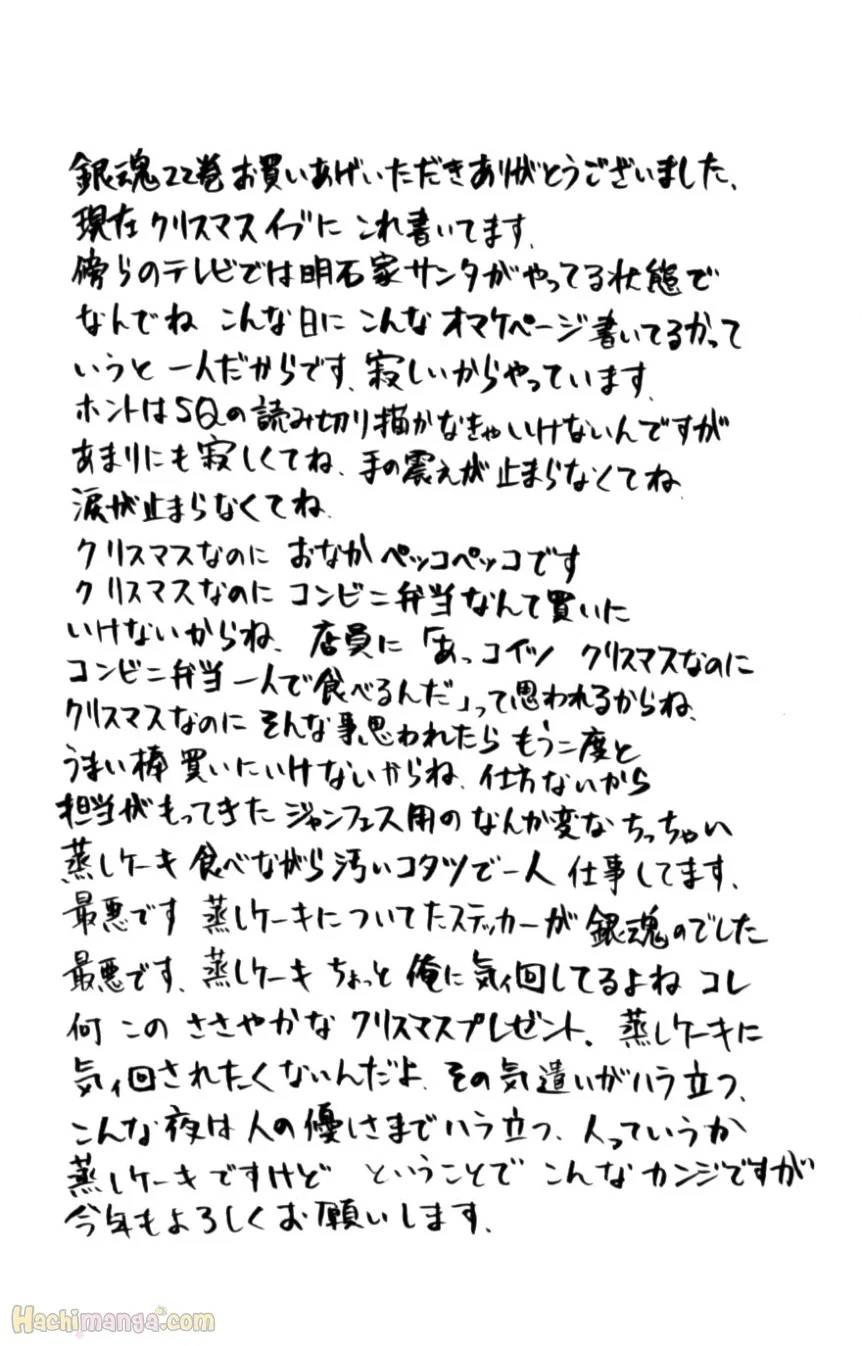 銀魂22巻お買いあげいただきありがとうございました、
現在クリスマスイブにこれ書いてます、
傍らのテレビでは明石家サンタがやってる状態で
なんでね こんな日にこんなオマケページ書いてるかって
いうと一人だからです、寂しいからやっています、
ホントはSQの読み切り描かなきゃいけないんですが
あまりにも寂しくてね、手の震えが止まらなくてね、
涙が止まらなくてね、
クリスマスなのに おなかペッコペッコです
クリスマスなのに コンビニ弁当なんて買いに
いけないからね、店員に「あっコイツ クリスマスなのに
コンビニ弁当一人で食べるんだ」って思われるからね、
クリスマスなのにそんな事思われたらもう二度と
うまい棒買いにいけないからね、仕方ないから
担当がもってきたジャンフェス用のなんか変なちっちゃい
蒸しケーキ食べながら汚いコタツで一人仕事してます、
最悪です 蒸しケーキについてたステッカーが銀魂のでした
最悪です、蒸しケーキちょっと俺に気ィ回してるよねコレ
何このささやかなクリスマスプレゼント、蒸しケーキに
気ィ回されたくないんだよ、その気遣いがハラ立つ、
こんな夜は人の優しさまでハラ立つ、人っていうか
蒸しケーキですけど ということで こんなカンジですが
今年もよろしくお願いします、
Hachimanga.com